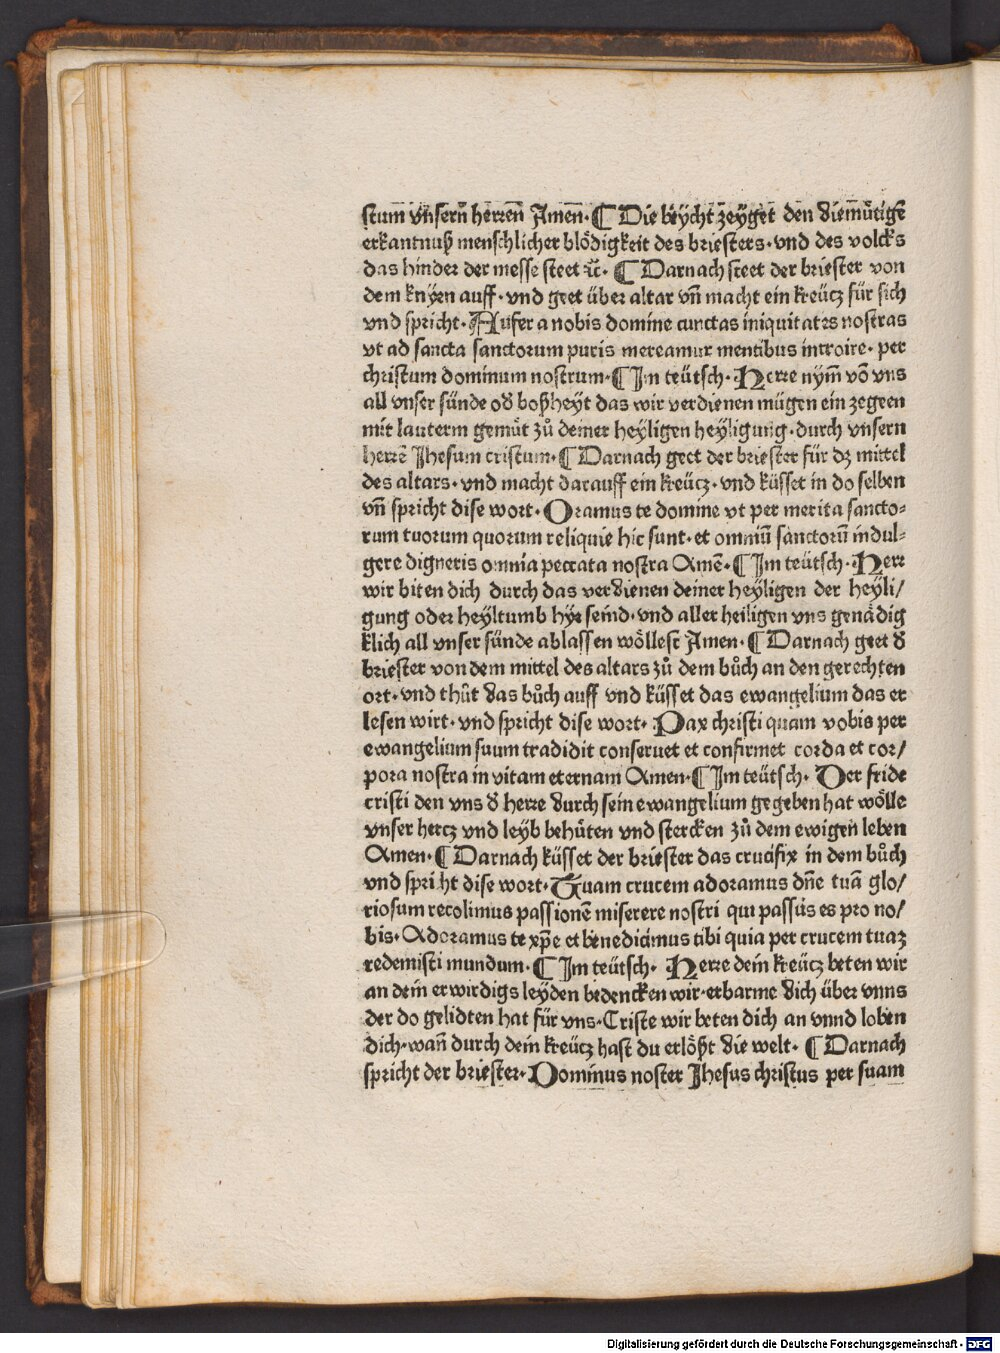 stum vnsern herren Amen· ¶ Die beycht zeyget den diemuͤtigē
erkantnuß menschlicher bloͤdigkeit des briesters· vnd des volcks
das hinder der messe steet ꝛc̄· ¶ Darnach steet der briester von
dem knyen auff· vnd geet über altar vn̄ macht ein kreücz für sich
vnd spricht· Aufer a nobis domine cunctas iniquitates nostras
vt ad sancta sanctorum puris mereamur mentibus introire· per
christum dominum nostrum· ¶ Im teütsch· Herre nym̄ vō vns
all vnser sünde od̾ boßheyt das wir verdienen mügen ein zegeen
mit lauterm gemuͤt zuͦ deiner heyligen heyligung· durch vnsern
herrē Jhesum cristum· ¶ Darnach geet der briester für dz mittel
des altars· vnd macht darauff ein kreücz· vnd küsset in do selben
vn̄ spricht dise wort· Oramus te domine vt per merita sancto⸗
rum tuorum quorum reliquie hic sunt· et omniū sanctorū indul⸗
gere digneris omnia peccata nostra Amē· ¶ Im teütsch· Herr
wir biten dich durch das verdienen deiner heyligen der heyli/
gung oder heyltumb hye seind· vnd aller heiligen vns genaͤdig
klich all vnser sünde ablassen woͤllest Amen· ¶ Darnach geet d̾
briester von dem mittel des altars zuͦ dem buͦch an den gerechten
ort· vnd thuͦt das buͦch auff vnd küsset das ewangelium das er
lesen wirt· vnd spricht dise wort· Pax christi quam vobis per
ewangelium suum tradidit conseruet et confirmet corda et cor/
pora nostra in vitam eternam Amen· ¶ Im teütsch· Der fride
cristi den vns d̾ herre durch sein ewangelium gegeben hat woͤlle
vnser hercz vnd leyb behuͤten vnd stercken zuͦ dem ewigen leben
Amen· ¶ Darnach küsset der briester das crucifix in dem buͦch
vnd spricht dise wort· Tuam crucem adoramus dn̄e tuā glo/
riosum recolimus passionem miserere nostri qui passus es pro no/
bis· Adoramus te xp̄e et benedicimus tibi quia per crucem tuaz
redemisti mundum· ¶ Im teütsch· Herre dein kreücz beten wir
an dein erwirdigs leyden bedencken wir· erbarme dich über vnns
der do gelidten hat für vns· Criste wir beten dich an vnnd loben
dich· wan̄ durch dein kreücz hast du erloͤßt die welt· ¶ Darnach
spricht der briester· Dominus noster Jhesus christus per suam
Digitalisierung gefördert durch die Deutsche Forschungsgemeinschaft - DFG